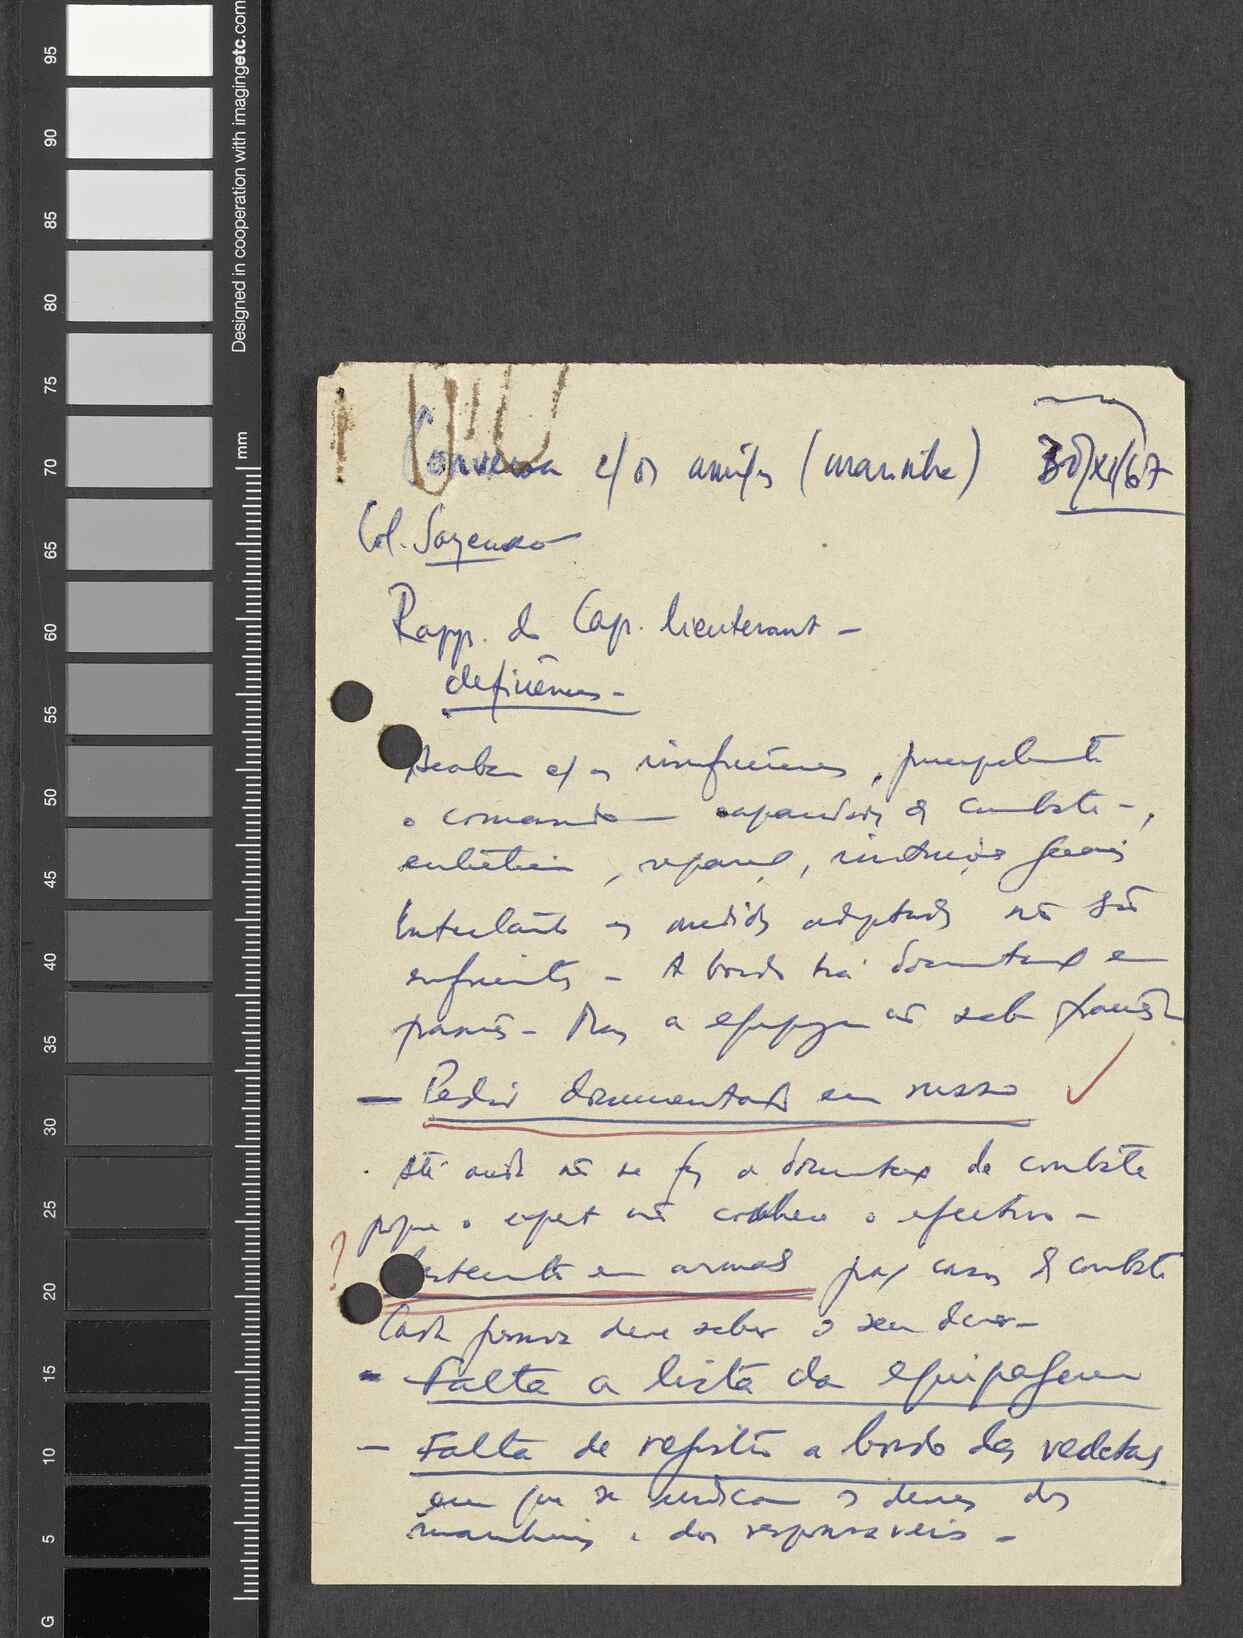 95
90
85
80
75
70
65
60
55
50
45
40
35
30
25
20
15
10
5
G
Designed in cooperation with imagingetc.com
mm
Conversa c/ os amigos (marinha) 30/XI/67
Col.
Rapp. do Cap. lieutenant –
deficiências –
Acabar c/ as insuficiências, principalmente
o comando capacidade de combate –,
as medidas adoptadas não são
suficientes – A bordo há documentação em
francês – Mas a equipagem não sabe francês
– Pedir documentação em russo
. Até onde não se fez a documentação de combate
porque o expert não conhece o efectivo –
?
em armas para casos de combate
Cada pessoa deve saber o seu dever –
– Falta a lista da equipagem
– Falta de registos a bordo das vedetas
em que se indicam os deveres dos
marinheiros e dos responsáveis –